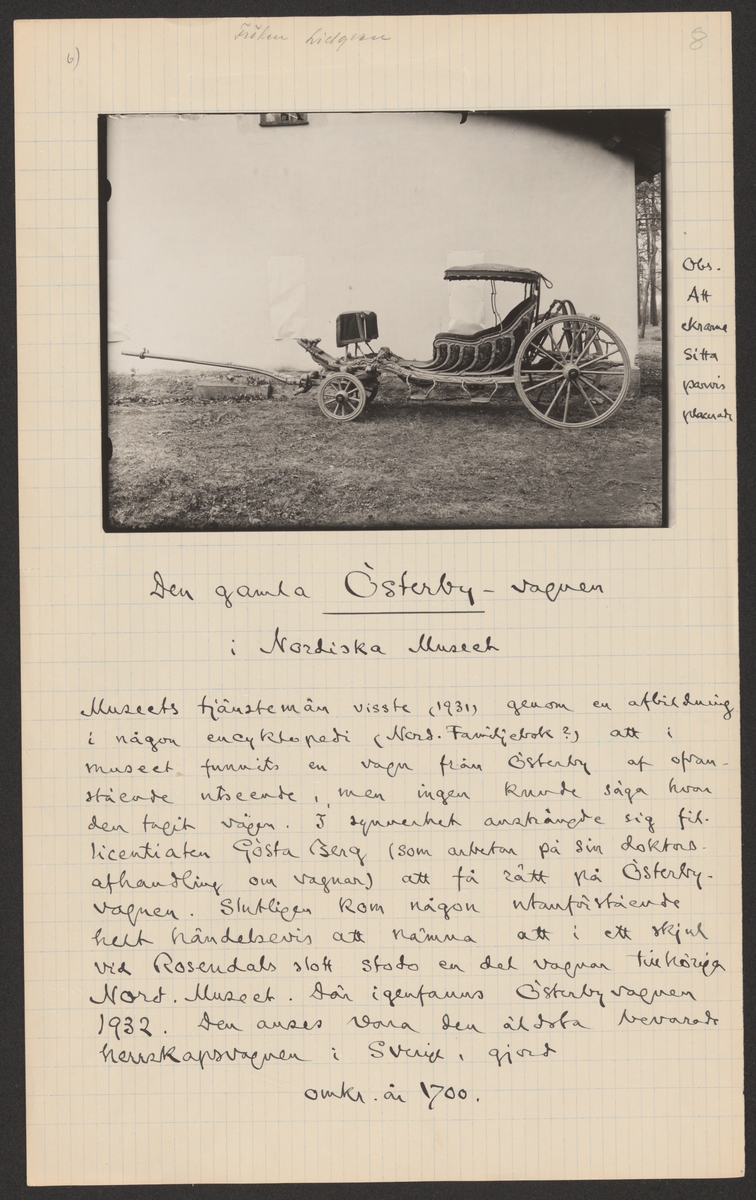 Fröken Lidgren
8
6)
Obs.
Att
ekrarna
sitta
parvis
placerade
Den gamla Österby-vagnen
i Nordiska Museet
Museets tjänstemän visste (1931) genom en afbildning
i någon encyklopedi (Nord. Familjebok?) att i
museet funnits en vagn från Österby af ofvan-
stående utseende, men ingen kunde säga hvar
den tagit vägen. I synnerhet ansträngde sig fil.
licentiaten Gösta Berg (som arbetar på sin doktors-
afhandling om vagnar) att få rätt på Österby-
vagnen. Slutligen kom någon utanförstående
helt händelsevis att nämna att i ett skjul
vid Rosendals slott stodo en del vagnar tillhöriga
Nord. Museet. Där igenfanns Österbyvagnen
1932. Den anses vara den äldsta bevarade
herrskapsvagnen i Sverige, gjord
omkr. år 1700.